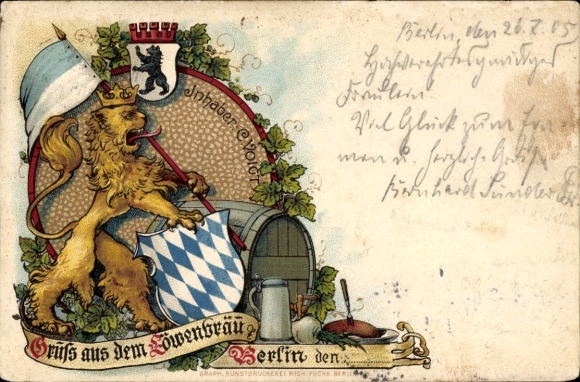 Berlin, den 26.7.05
Fräulein.
Viel Glück zum
u. herzliche Grüße
Bernhard
Inhaber: C. Voigt
Gruss aus dem Löwenbräu
Berlin den
GRAPH. KUNSTDRUCKEREI RICH. FUCHS BERLIN